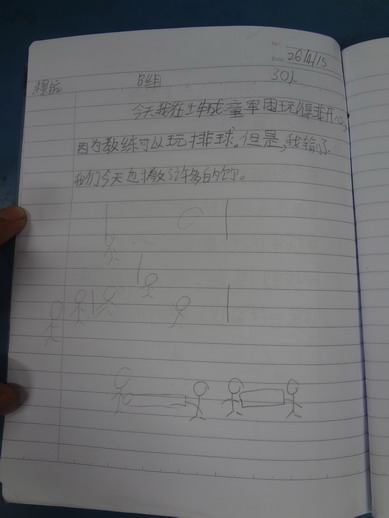 26/4/15
B组 30人
今天我在上城童军团玩得非开心,
因为教练可以玩排球。但是,我输了
我们今天也做了许多的